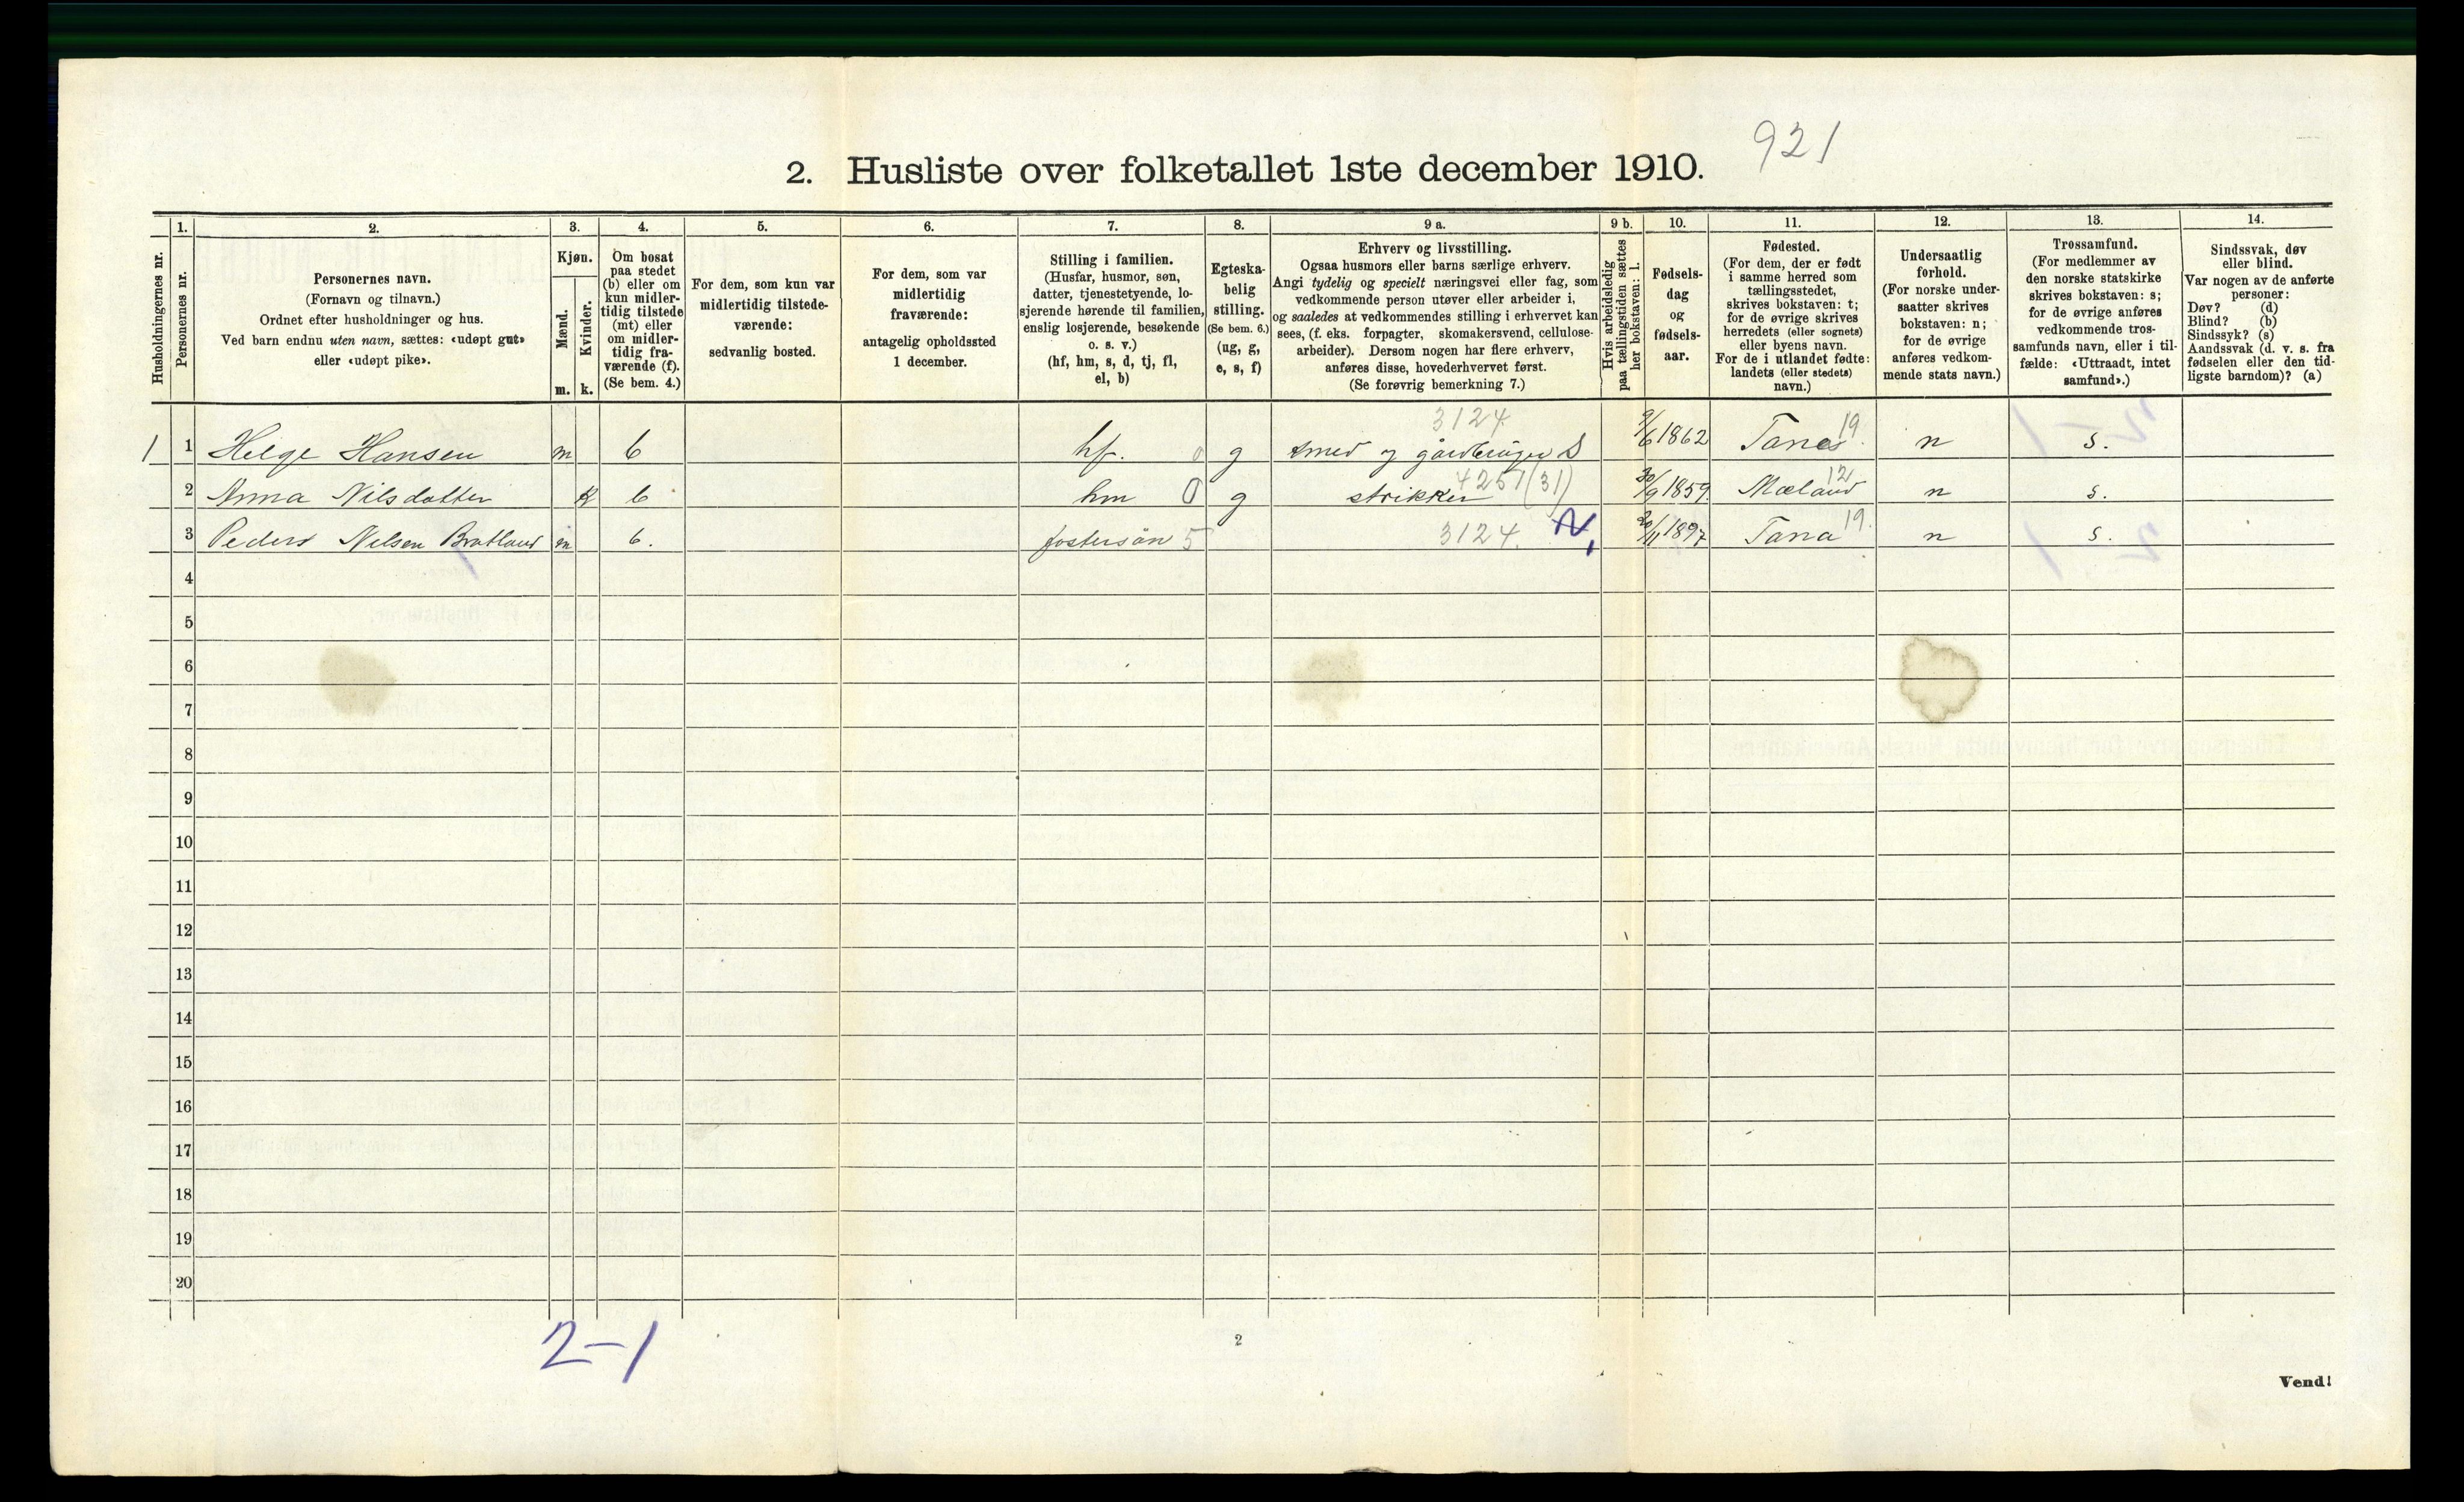 921
2. Husliste over folketallet 1ste december 1910.
Husholdningernes nr.
1.
Personernes nr.
2.
Personernes navn.
(Fornavn og tilnavn.)
Ordnet efter husholdninger og hus.
Ved barn endnu uten navn, sættes: «udøpt gut»
eller «udøpt pike».
3.
Kjøn.
Mænd.
m.
Kvinder.
k.
4.
Om bosat
paa stedet
(b) eller om
kun midler-
tidig tilstede
(mt) eller
om midler-
tidig fra-
værende (f).
(Se bem. 4.)
5.
For dem, som kun var
midlertidig tilstede-
værende:
sedvanlig bosted.
6.
For dem, som var
midlertidig
fraværende:
antagelig opholdssted
1 december.
7.
Stilling i familien.
(Husfar, husmor, søn,
datter, tjenestetyende, lo-
sjerende hørende til familien,
enslig losjerende, besøkende
o. s. v.)
(hf, hm, s, d, tj, fl,
el, b)
8.
Egteska-
belig
stilling.
(Se bem. 6.)
(ug, g,
e, s, f)
9 a.
Erhverv og livsstilling.
Ogsaa husmors eller barns særlige erhverv.
Angi tydelig og specielt næringsvei eller fag, som
vedkommende person utøver eller arbeider i,
og saaledes at vedkommendes stilling i erhvervet kan
sees, (f. eks. forpagter, skomakersvend, cellulose-
arbeider). Dersom nogen har flere erhverv,
anføres disse, hovederhvervet først.
(Se forøvrig bemerkning 7.)
9 b.
Hvis arbeidsledig
paa tællingstiden sættes
her bokstaven: l.
10.
Fødsels-
dag
og
fødsels-
aar.
11.
Fødested.
(For dem, der er født
i samme herred som
tællingsstedet,
skrives bokstaven: t;
for de øvrige skrives
herredets (eller sognets)
eller byens navn.
For de i utlandet fødte:
landets (eller stedets)
navn.)
12.
Undersaatlig
forhold.
(For norske under-
saatter skrives
bokstaven: n;
for de øvrige
anføres vedkom-
mende stats navn.)
13.
Trossamfund.
(For medlemmer av
den norske statskirke
skrives bokstaven: s;
for de øvrige anføres
vedkommende tros-
samfunds navn, eller i til-
fælde: «Uttraadt, intet
samfund».)
14.
Sindssvak, døv
eller blind.
Var nogen av de anførte
personer:
Døv? (d)
Blind? (b)
Sindssyk? (s)
Aandssvak (d. v. s. fra
fødselen eller den tid-
ligste barndom)? (a)
3124
1 1 Helge Hansen m b hf. 0 g smed og gårdbruger S 9/6 1862 Tana 19. n s.
4251 (31)
2 Anna Nilsdatter k b hm 0 g strikker 30/9 1859 Mæland 12 n s.
3 Peder Nilsen Bratland m b. fostersøn 5 3124. N, 20/11 1897 Tana 19. n s.
4
5
6
7
8
9
10
11
12
13
14
15
16
17
18
19
20
2-1
2
Vend!